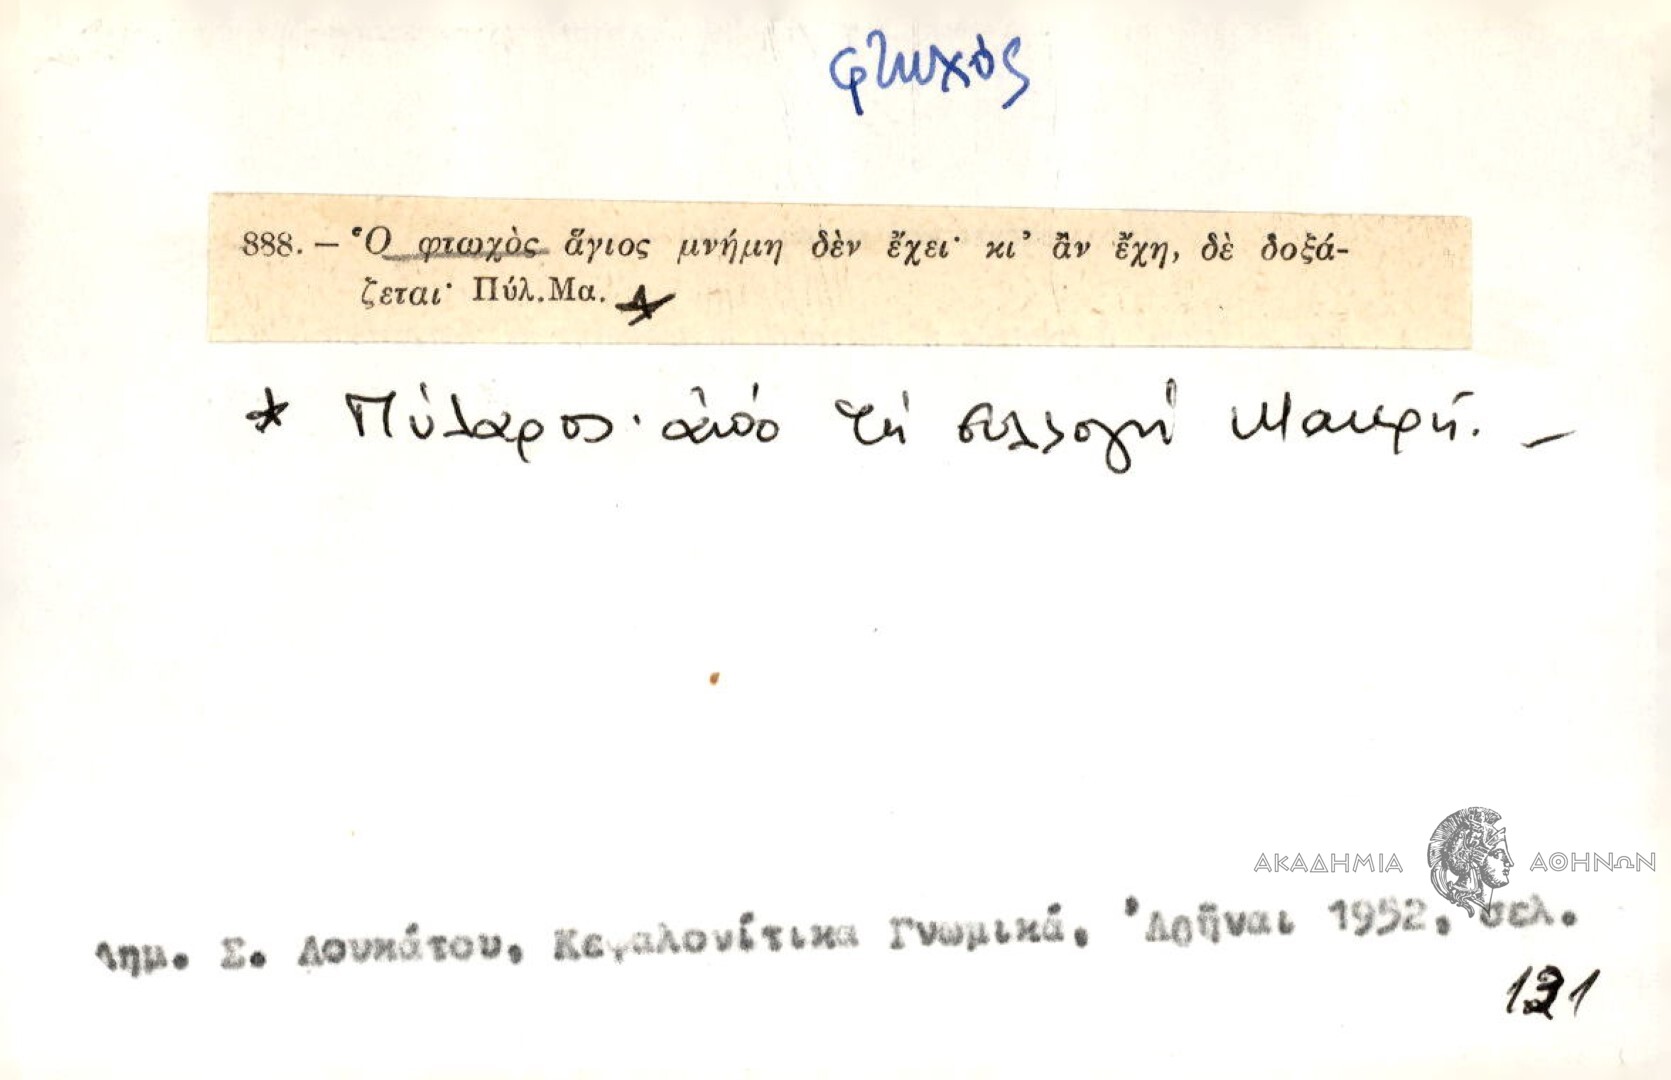 φτωχὸς
888. – Ὁ φτωχὸς ἅγιος μνήμη δὲν ἔχει· κι' ἂν ἔχη, δὲ δοξά-
ζεται· Πύλ.Μα. *
* Πύλαρος· ἀπὸ τὴ συλλογὴ Μακρῆ. –
ΑΚΑΔΗΜΙΑ ΑΘΗΝΩΝ
Δημ. Σ. Λουκάτου, Κεφαλονίτικα Γνωμικά, Ἀθῆναι 1952, σελ.
131